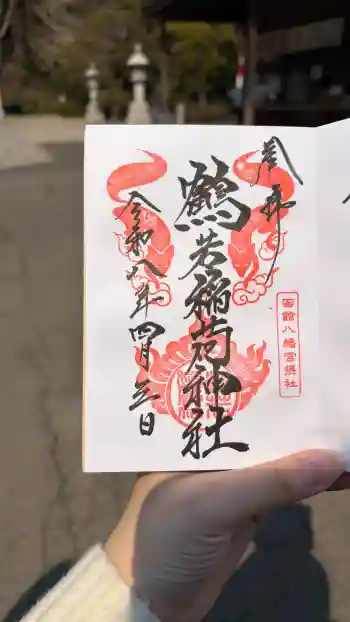 奉拝
鶴若稲荷神社
函館八幡宮摂社
令和八年四月三日